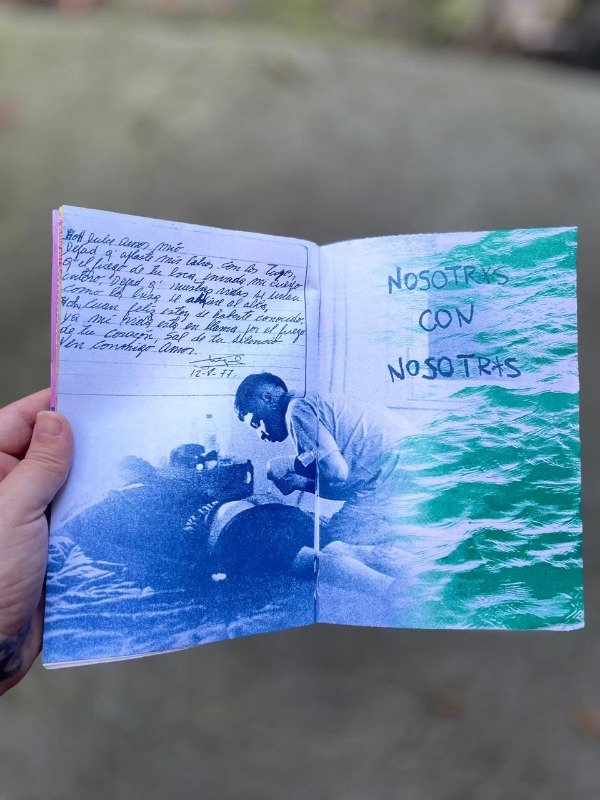 Hoh Dulce Amor mio
Dejad q' aplaste mis labios con los Tuyos,
q' el fuego de tu boca, invada mi cuerpo
entero. Dejad q' nuestras vidas se unan
como la brisa se al alva
Hoh Cuan feliz estoy de haberte conocido,
ya mi está en llama por el fuego
de tu corazón, sal de tu silencio
Ven conmigo Amor.
12.8.77.
NOSOTRXS
CON
NOSOTR*S